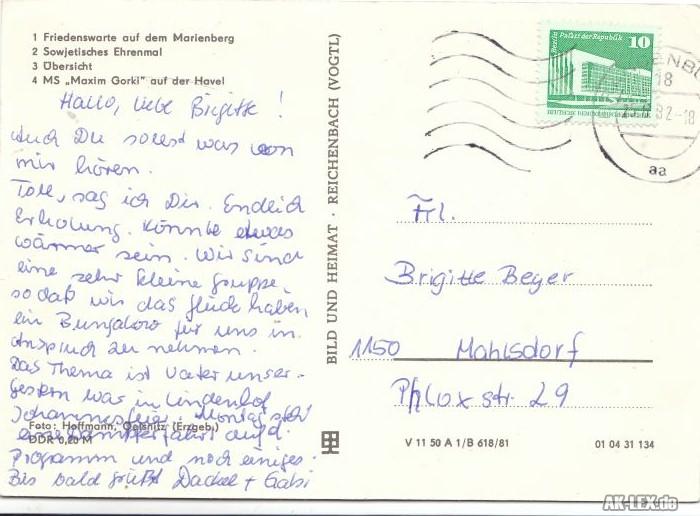 1 Friedenswarte auf dem Marienberg
2 Sowjetisches Ehrenmal
3 Übersicht
4 MS „Maxim Gorki" auf der Havel
Hallo, liebe Brigitte!
Auch Du sollst was von
mir hören.
Toll, sag ich Dir. Endlich
Erholung. Könnte etwas
wärmer sein. Wir sind
eine sehr kleine Gruppe,
so daß wir das Glück haben,
ein Bungalow für uns in
Anspruch zu nehmen.
Das Thema ist Vater unser.
Gestern war in Lindenhof
Johannesfeier. Montag steht
eine Dampferfahrt auf d.
Foto: Hoffmann, Oelsnitz (Erzgeb.)
DDR 0,20 M
Programm und noch einiges.
Bis bald grüßt Dackel + Gabi
BILD UND HEIMAT · REICHENBACH (VOGTL)
Berlin Palast der Republik
10
DEUTSCHE DEMOKRATISCHE REPUBLIK
18
82-18
aa
Frl.
Brigitte Beyer
1150 Mahlsdorf
Phlox str. 29
V 11 50 A 1/B 618/81
01 04 31 134
AK-LEX.de